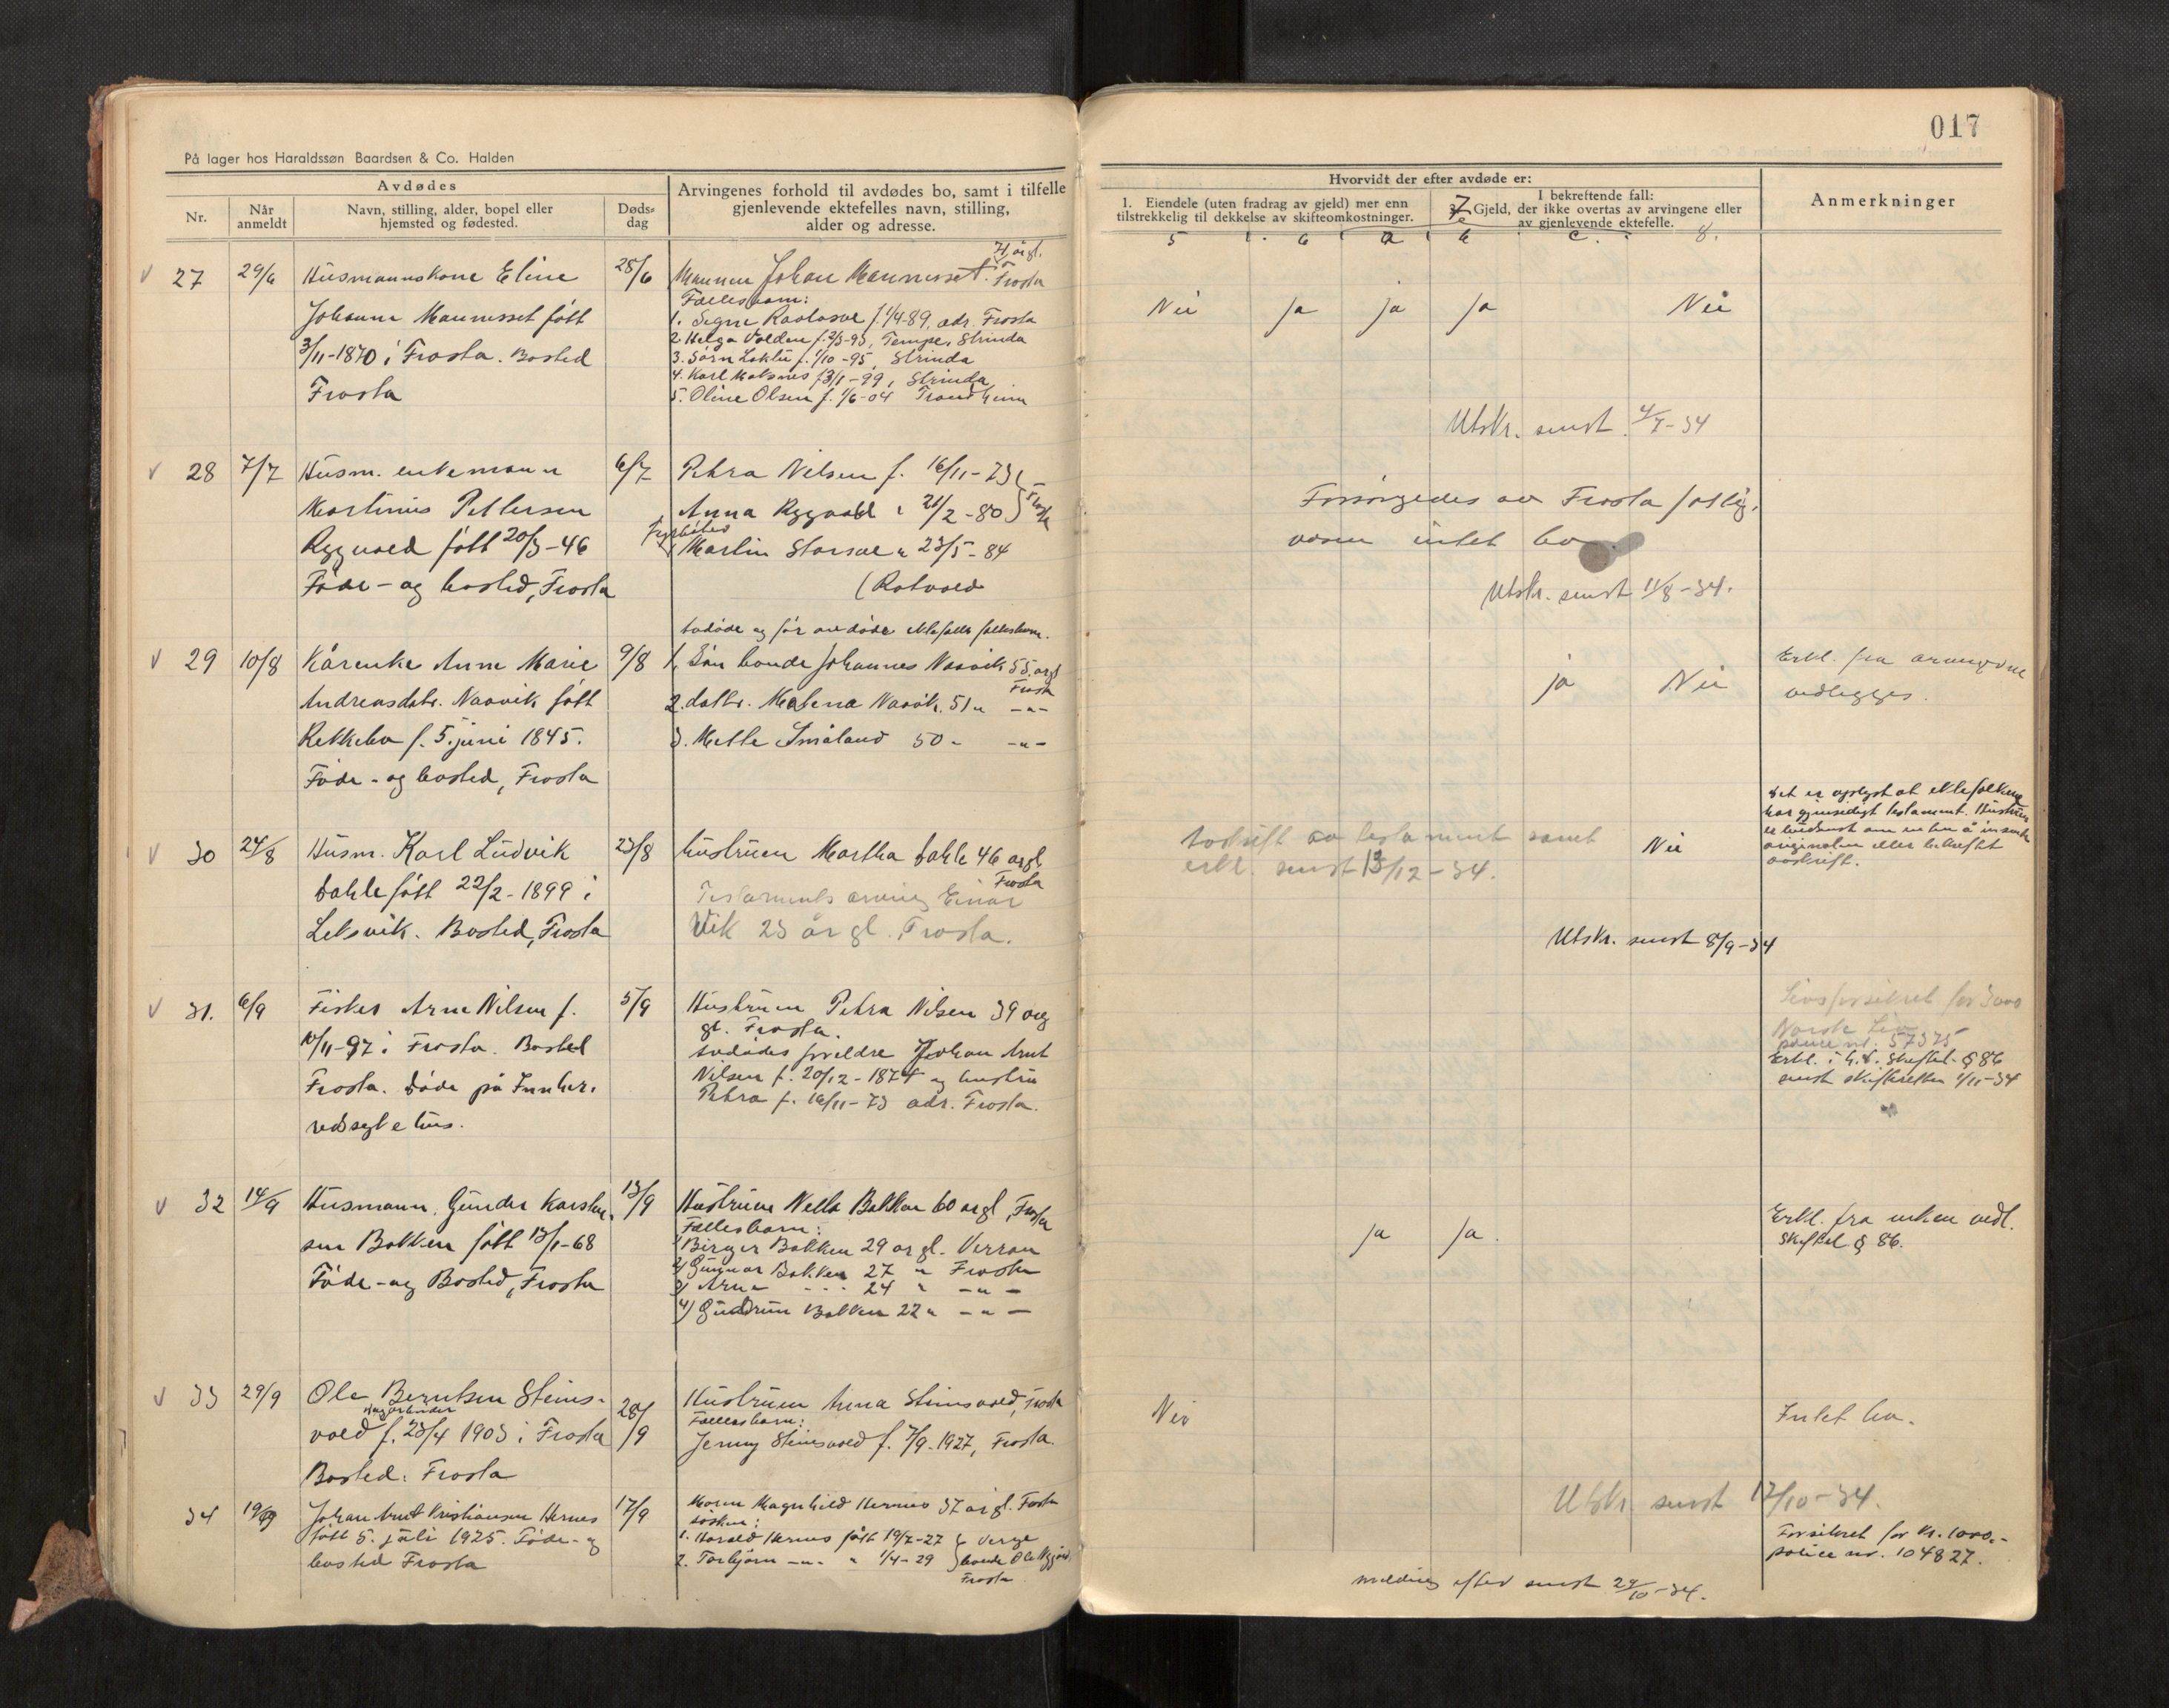 017
På lager hos Haraldssøn Baardsen & Co. Halden
Avdødes
Nr.
Når anmeldt
Navn, stilling, alder, bopel eller hjemsted og fødested.
Døds-dag
Arvingenes forhold til avdødes bo, samt i tilfelle
gjenlevende ektefelles navn, stilling,
alder og adresse.
Hvorvidt der efter avdøde er:
1. Eiendele (uten fradrag av gjeld) mer enn
tilstrekkelig til dekkelse av skifteomkostninger.
I bekreftende fall:
7 Gjeld, der ikke overtas av arvingene eller
av gjenlevende ektefelle.
Anmerkninger
5 6 a b c. 8.
27 29/6 Husmannskone Eline 28/6
Johanna Mannesset født
3/11-1870 i Frosta. Bosted
Frosta
Mannen Johan Mannesset. Frosta
Fællesbarn:
1. Signe f. 1/4-89, adr. Frosta
2. Helga Volden f. 2/3-93, Tempe, Strinda
3. f. 1/10-95, Strinda
4. Karl f. 3/1-99, Strinda
5. Oline Olsen f. 1/6-04 Trondheim
Nei ja ja ja Nei
Utskr. sendt 4/7-34
28 7/7 Husm. enkemann 6/7
Martinus Pettersen
Ryggvold født 20/3-46
Føde- og bosted, Frosta
Petra Nilsen f. 16/11-73
Anna Ryggvold " 21/2-80
Martin Storvoll " 23/5-84
(Rotvold
Forsørgedes av Frosta fattig-
vesen intet bo.
Utskr. sendt 11/8-34.
29 10/8 Kårenke Anne Marie 9/8
Andreasdatr. Naavik født
Rekkebo f. 5. juni 1845.
Føde- og bosted, Frosta
avdøde og før avdøde ektefelles fellesbarn.
1. Søn bonde Johannes Naavik 55 årgl
Frosta
2. dattr. Malena Naavik. 51 " -"-
3. Mette Småland 50 - -"-
ja Nei
Erkl. fra arvingene
vedlegges.
30 24/8 Husm. Karl Ludvik 23/8
Dahle født 22/2-1899 i
Leksvik. Bosted, Frosta
hustruen Martha Dahle 46 årgl
Frosta
Testaments arving Einar
Vik 23 år gl. Frosta.
Avskrift av testament samt
erkl. sendt 13/12-34.
Nei
Det er oplyst at ektefolkene
har gjensidigt testament. Hustruen
er tilsendt om en ten å insende
originalen eller bekreftet
avskrift.
Utskr. sendt 8/9-34
31. 6/9 Fisker Arne Nilsen f. 5/9
10/11-97 i Frosta. Bosted
Frosta. Døde på Innher-
redssykehus.
Hustruen Petra Nilsen 39 årg
gl. Frosta.
Avdødes foreldre Johan Arnt
Nilsen f. 20/12-1874 og hustru
Petra f. 16/11-73 adr. Frosta.
Livsforsikret for 3000
Norske Liv
police nr. 57375
Erkl. i h.t. skiftel. § 86
sendt skifteretten 1/11-34
32 14/9 Husmann. Gunder Karsten- 13/9
sen Bakken født 13/1-68
Føde- og Bosted, Frosta
Hustruen Nella Bakken 60 årgl, Frosta
Fællesbarn:
1) Birger Bakken 29 årgl. Verran
2) Gunnar Bakken 27 " Frosta
3) Arne - - - 24 " -"-
4) Gudrun Bakken 22 " -"-
ja ja.
Erkl. fra enken vedl.
Skiftel § 86.
33 29/9 Ole Berntsen Steins- 28/9
dagarbeider
vold f. 23/4 1903 i Frosta
Bosted. Frosta
Hustruen Anna Steinsvold, Frosta
Fællesbarn:
Jenny Steinsvold f. 7/9-1927, Frosta.
Nei
Intet bo.
Utskr. sendt 12/10-34.
34 19/9 Johan Arnt Kristiansen Hernes 17/9
født 5. juli 1925. Føde- og
bosted Frosta
Moren Magnhild Hernes 37 årgl. Frosta
søsken:
1. Harald Hernes født 19/7-27 } Verge
2. Torbjørn -"- " 1/4-29 bonde Ole
Frosta
Forsikret for kr. 1000.-
police nr. 104827.
melding efter sendt 24/10-34.